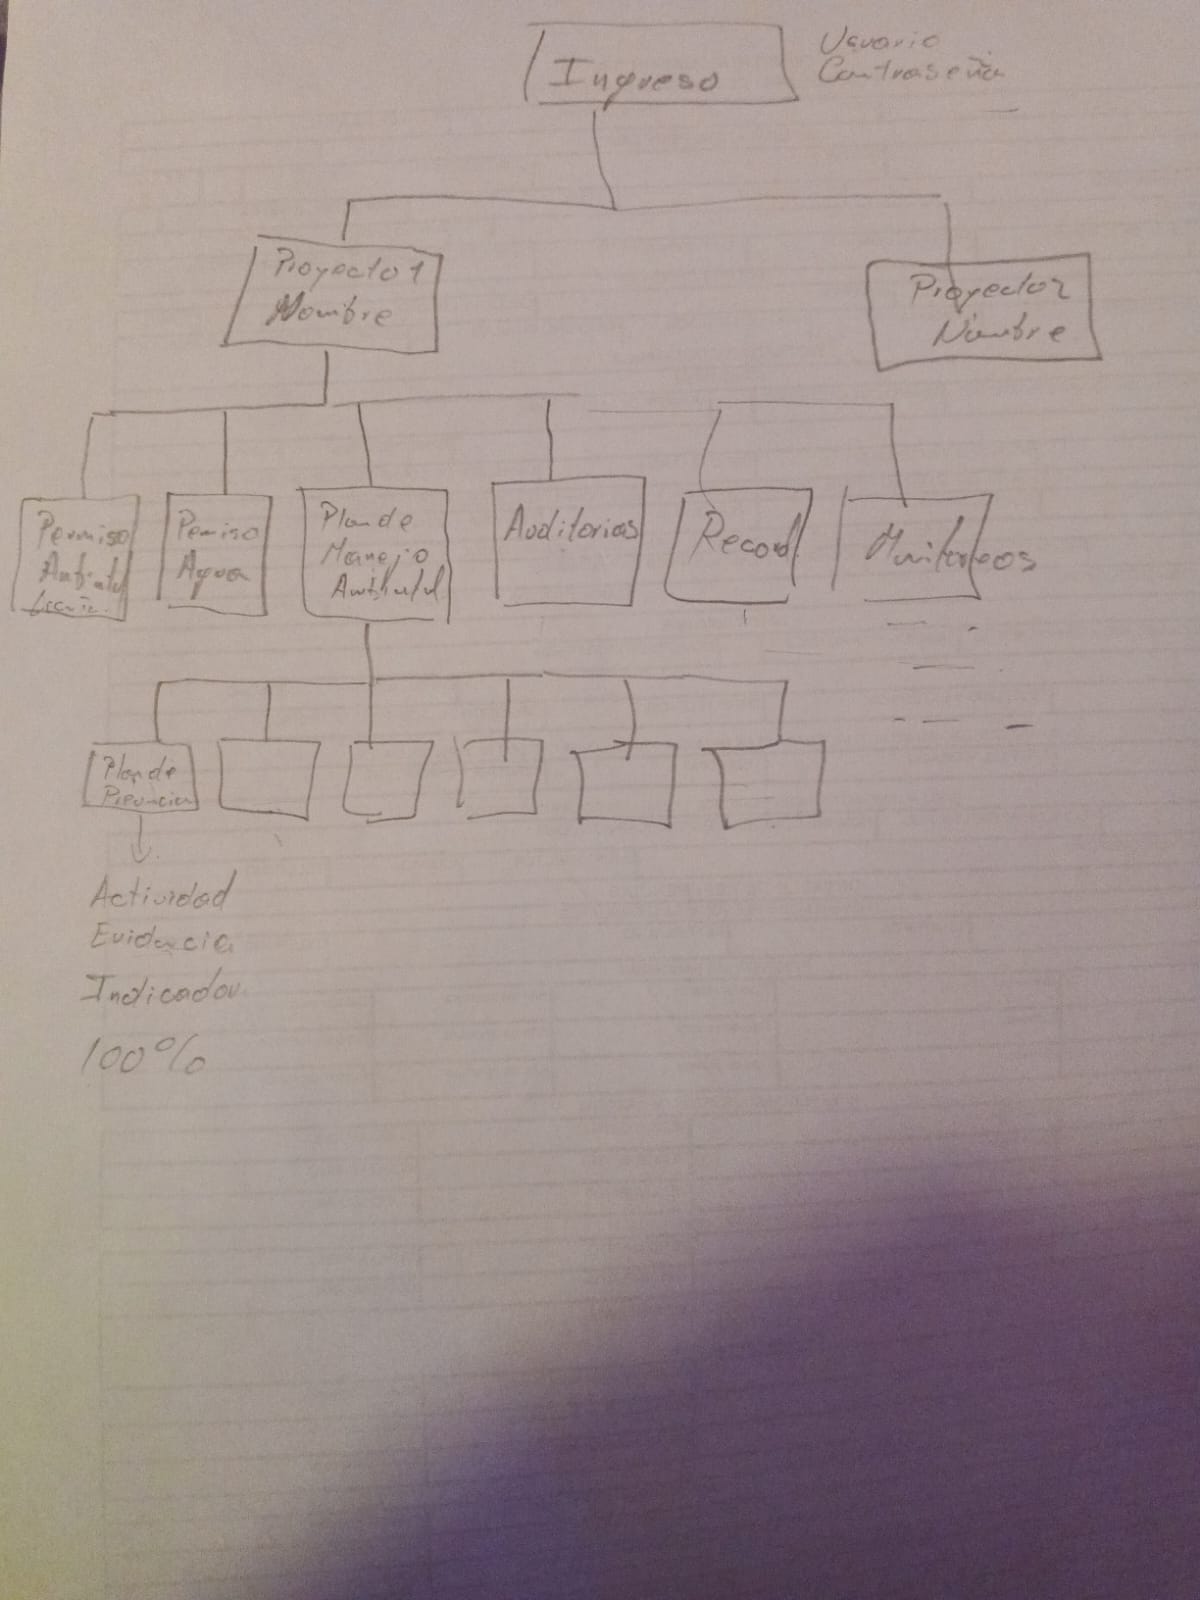 Ingreso
Usuario
Contraseña
Proyecto 1
Nombre
Proyecto 2
Nombre
Permiso
Permiso
Agua
Plan de
Manejo
Ambiental
Auditorias
Record
Monitoreos
Plan de
Prevencion
Actividad
Evidencia
Indicador
100%